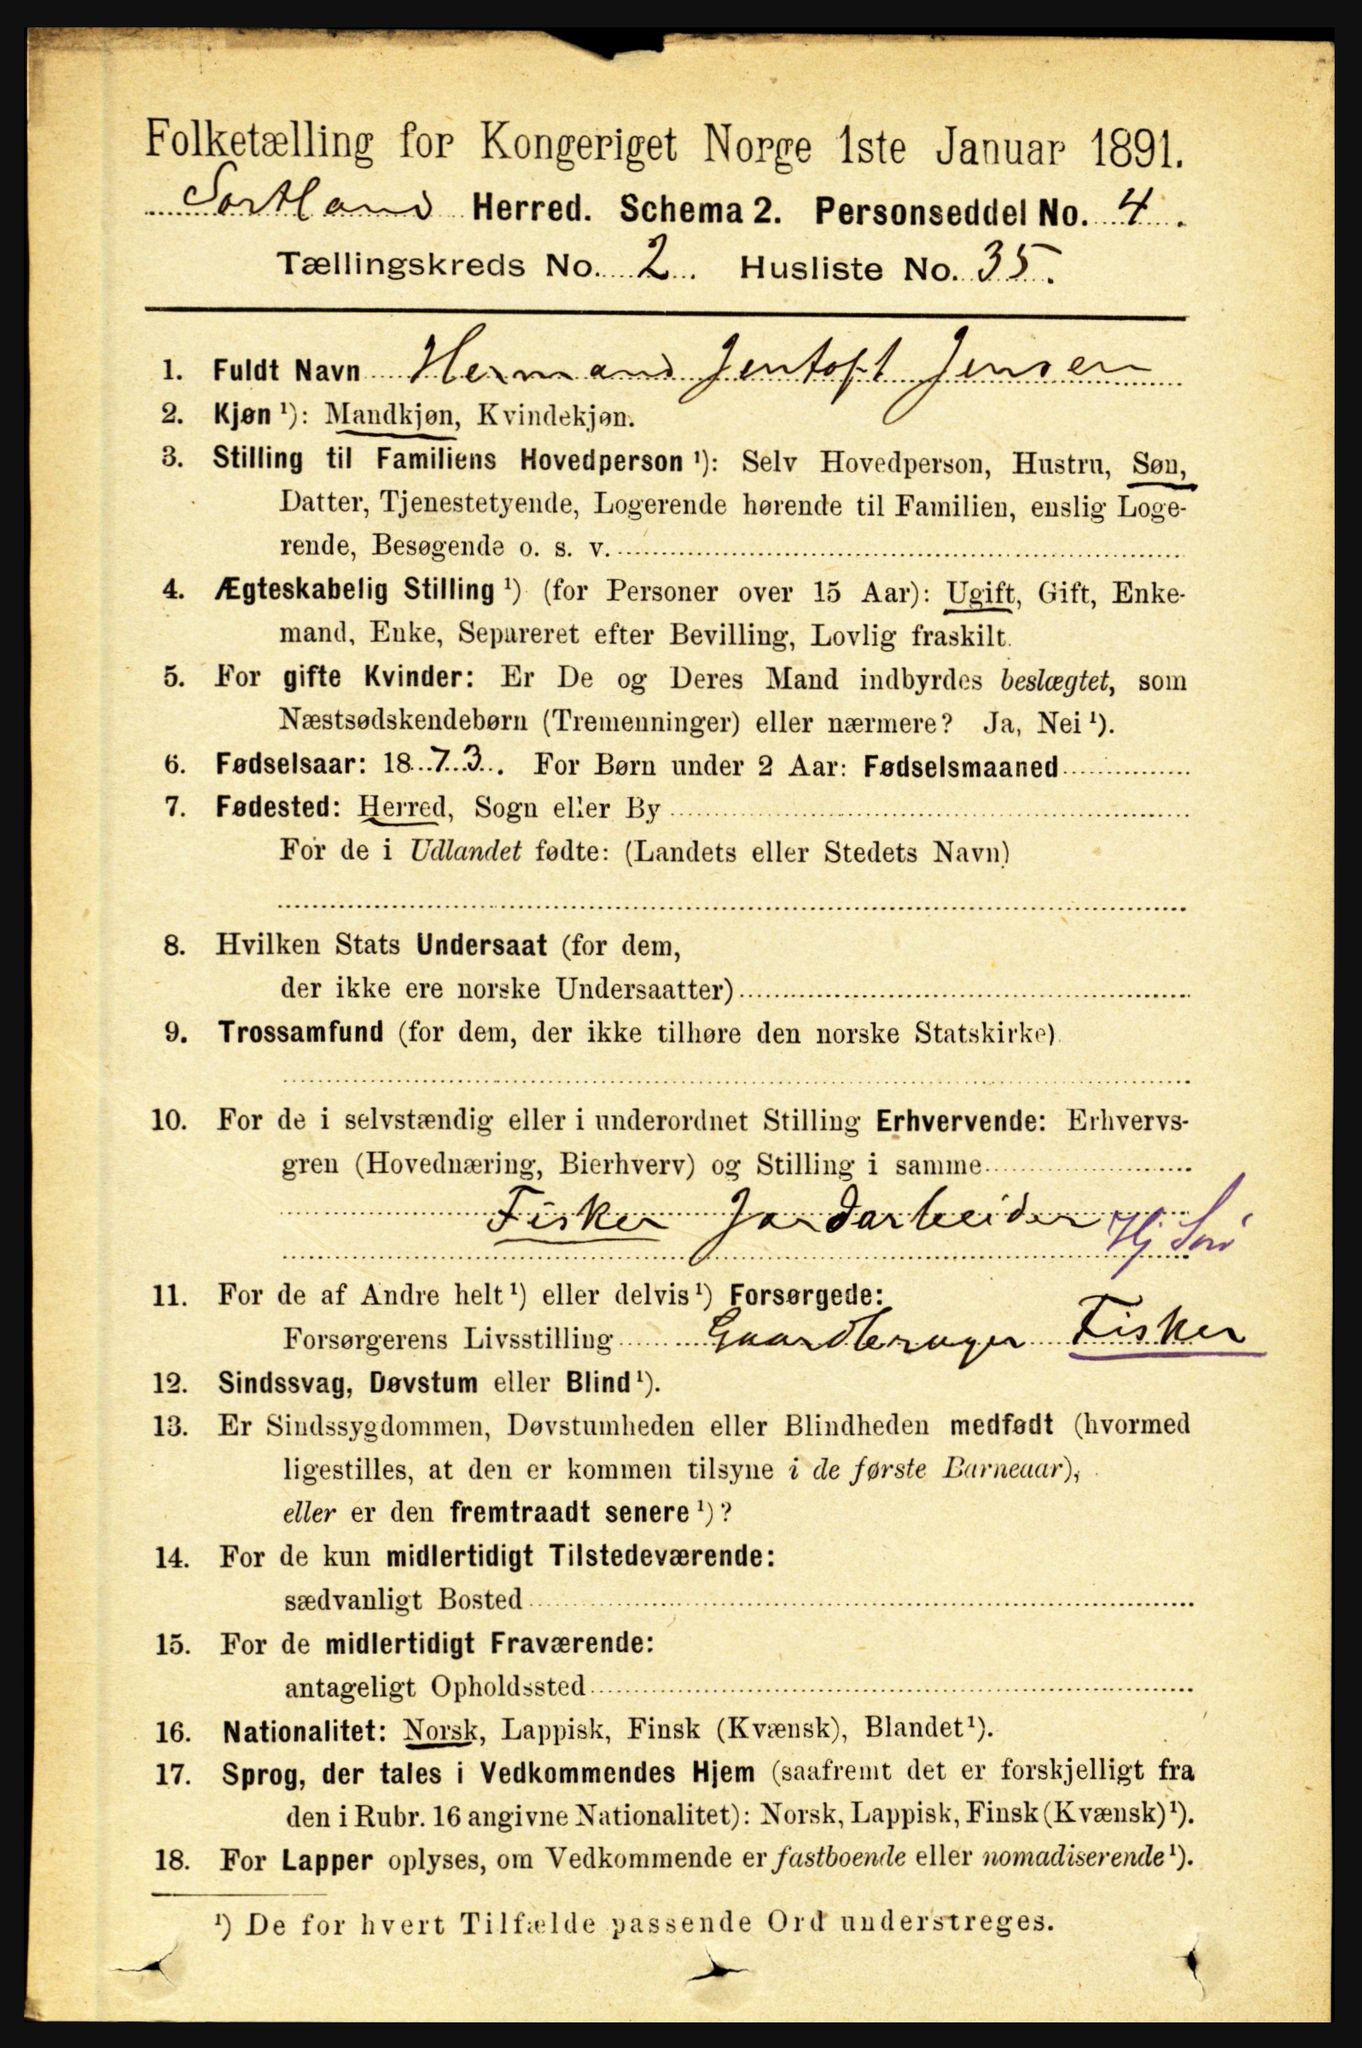 Folketælling for Kongeriget Norge 1ste Januar 1891.
Sortland Herred. Schema 2. Personseddel No. 4.
Tællingskreds No. 2. Husliste No. 35.
1. Fuldt Navn Hermand Jentoft Jensen
2. Kjøn ¹): Mandkjøn, Kvindekjøn.
3. Stilling til Familiens Hovedperson ¹): Selv Hovedperson, Hustru, Søn,
Datter, Tjenestetyende, Logerende hørende til Familien, enslig Loge-
rende, Besøgende o. s. v.
4. Ægteskabelig Stilling ¹) (for Personer over 15 Aar): Ugift, Gift, Enke-
mand, Enke, Separeret efter Bevilling, Lovlig fraskilt.
5. For gifte Kvinder: Er De og Deres Mand indbyrdes beslægtet, som
Næstsødskendebørn (Tremenninger) eller nærmere? Ja, Nei ¹).
6. Fødselsaar: 1873. For Børn under 2 Aar: Fødselsmaaned
7. Fødested: Herred, Sogn eller By
For de i Udlandet fødte: (Landets eller Stedets Navn)
8. Hvilken Stats Undersaat (for dem,
der ikke ere norske Undersaatter)
9. Trossamfund (for dem, der ikke tilhøre den norske Statskirke).
10. For de i selvstændig eller i underordnet Stilling Erhvervende: Erhvervs-
gren (Hovednæring, Bierhverv) og Stilling i samme
Fisker Jordarbeider Hj Søn
11. For de af Andre helt ¹) eller delvis ¹) Forsørgede:
Forsørgerens Livsstilling Gaardbruger Fisker
12. Sindssvag, Døvstum eller Blind ¹).
13. Er Sindssygdommen, Døvstumheden eller Blindheden medfødt (hvormed
ligestilles, at den er kommen tilsyne i de første Barneaar),
eller er den fremtraadt senere ¹)?
14. For de kun midlertidigt Tilstedeværende:
sædvanligt Bosted
15. For de midlertidigt Fraværende:
antageligt Opholdssted
16. Nationalitet: Norsk, Lappisk, Finsk (Kvænsk), Blandet ¹).
17. Sprog, der tales i Vedkommendes Hjem (saafremt det er forskjelligt fra
den i Rubr. 16 angivne Nationalitet): Norsk, Lappisk, Finsk (Kvænsk) ¹).
18. For Lapper oplyses, om Vedkommende er fastboende eller nomadiserende ¹).
¹) De for hvert Tilfælde passende Ord understreges.